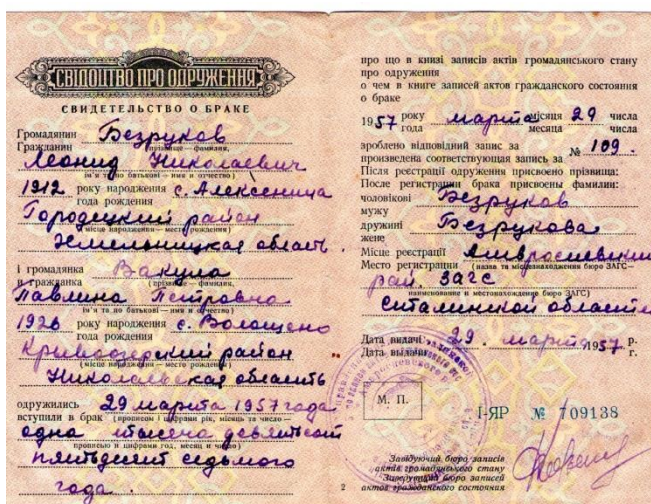 СВІДОЦТВО ПРО ОДРУЖЕННЯ
СВИДЕТЕЛЬСТВО О БРАКЕ
Громадянин Безруков
Гражданин (прізвище — фамилия,
Леонид Николаевич
ім'я та по батькові — имя и отчество)
1912 року народження с. Алексеница
года рождения
Городецкий район
(місце народження — место рождения)
Хмельницкая область.
і громадянка Вакула
и гражданка (прізвище — фамилия,
Павлина Петровна
ім'я та по батькові — имя и отчество)
1926 року народження с. Волощено
года рождения
район
(місце народження — место рождения)
Николаевская область
одружились 29 марта 1957 года
вступили в брак (прописом і цифрами рік, місяць та число —
одна тысяча девятьсот
прописью и цифрами год, месяц и число)
пятьдесят седьмого
года.
про що в книзі записів актів громадянського стану
про одруження
о чем в книге записей актов гражданского состояния
о браке
1957 року марта місяця 29 числа
года месяца числа
зроблено відповідний запис за № 109.
произведена соответствующая запись за
Після реєстрації одруження присвоєно прізвища:
После регистрации брака присвоены фамилии:
чоловікові Безруков
мужу
дружині Безрукова
жене
Місце реєстрації Амвросиевский
Место регистрации (назва та місцезнаходження бюро ЗАГС—
рай. ЗАГС
наименование и местонахождение бюро ЗАГС)
Сталинской области
Дата видачі 29. марта 1957 р.
Дата выдачи г.
М. П.
І-ЯР № 709138
Завідуючий бюро записів
актів громадянського стану
Заведующий бюро записей
актов гражданского состояния
2